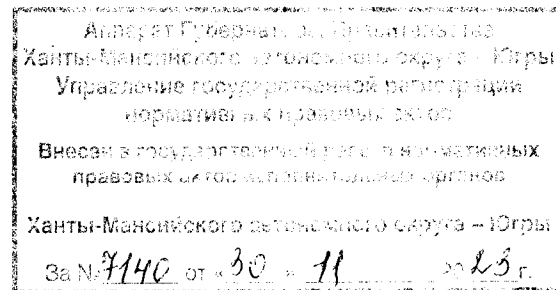 Аппарат Губернатора, Правительства
Ханты-Мансийского автономного округа – Югры
Управление государственной регистрации
нормативных правовых актов
Внесен в государственный нормативных
правовых актов исполнительных органов
Ханты-Мансийского автономного округа – Югры
За № 7140 от «30» 11 2023 г.